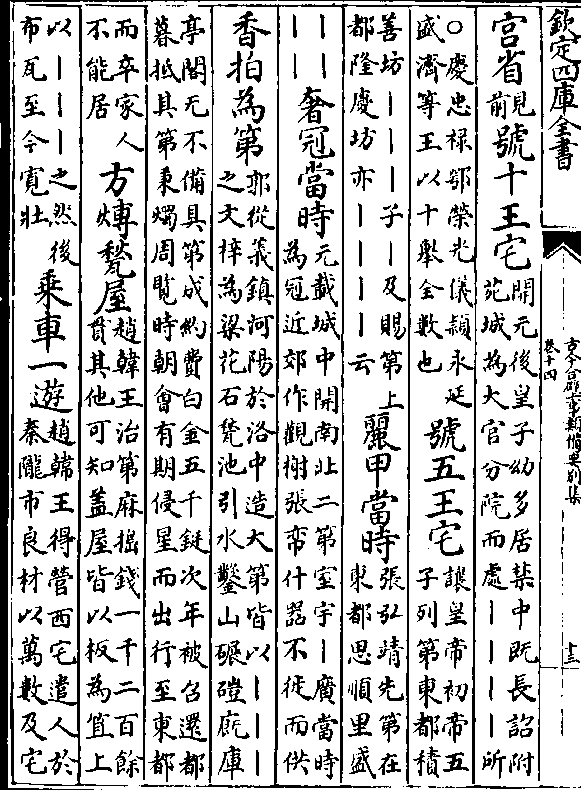 欽定四庫全書
古今合璧事類備要別集
卷十四
十三
宫省見前號十王宅開元後皇子幼多居禁中既長詔附苑城為大官分院而處丨丨丨丨所
○慶忠禄鄂榮光儀潁永延盛濟等王以十舉全數也號五王宅讓皇帝初帝五子列第東都積
善坊丨丨丨丨子丨及賜第上都隆慶坊亦丨丨丨丨云麗甲當時張弘靖先第在東都思順里盛
丨丨丨丨奢冠當時元載城中開南北二第室宇丨廣當時為冠近郊作觀榭張帟什器不徙而供
香柏為第郭從義鎮河陽於洛中造大第皆以丨丨丨丨之文梓為梁花石甃池引水鑿山碾磑廐庫
亭閣无不備具第成約費白金五千鋌次年被召還都暮抵其第秉燭周覽時朝會有期侵星而出行至東都
而卒家人不能居方塼甃屋趙韓王治第麻搗錢一千二百餘貫其他可知蓋屋皆以板為笪上
以丨丨丨丨之然後布瓦至今寛壯乘車一遊趙韓王得營西宅遣人於秦隴市良材以萬數及宅